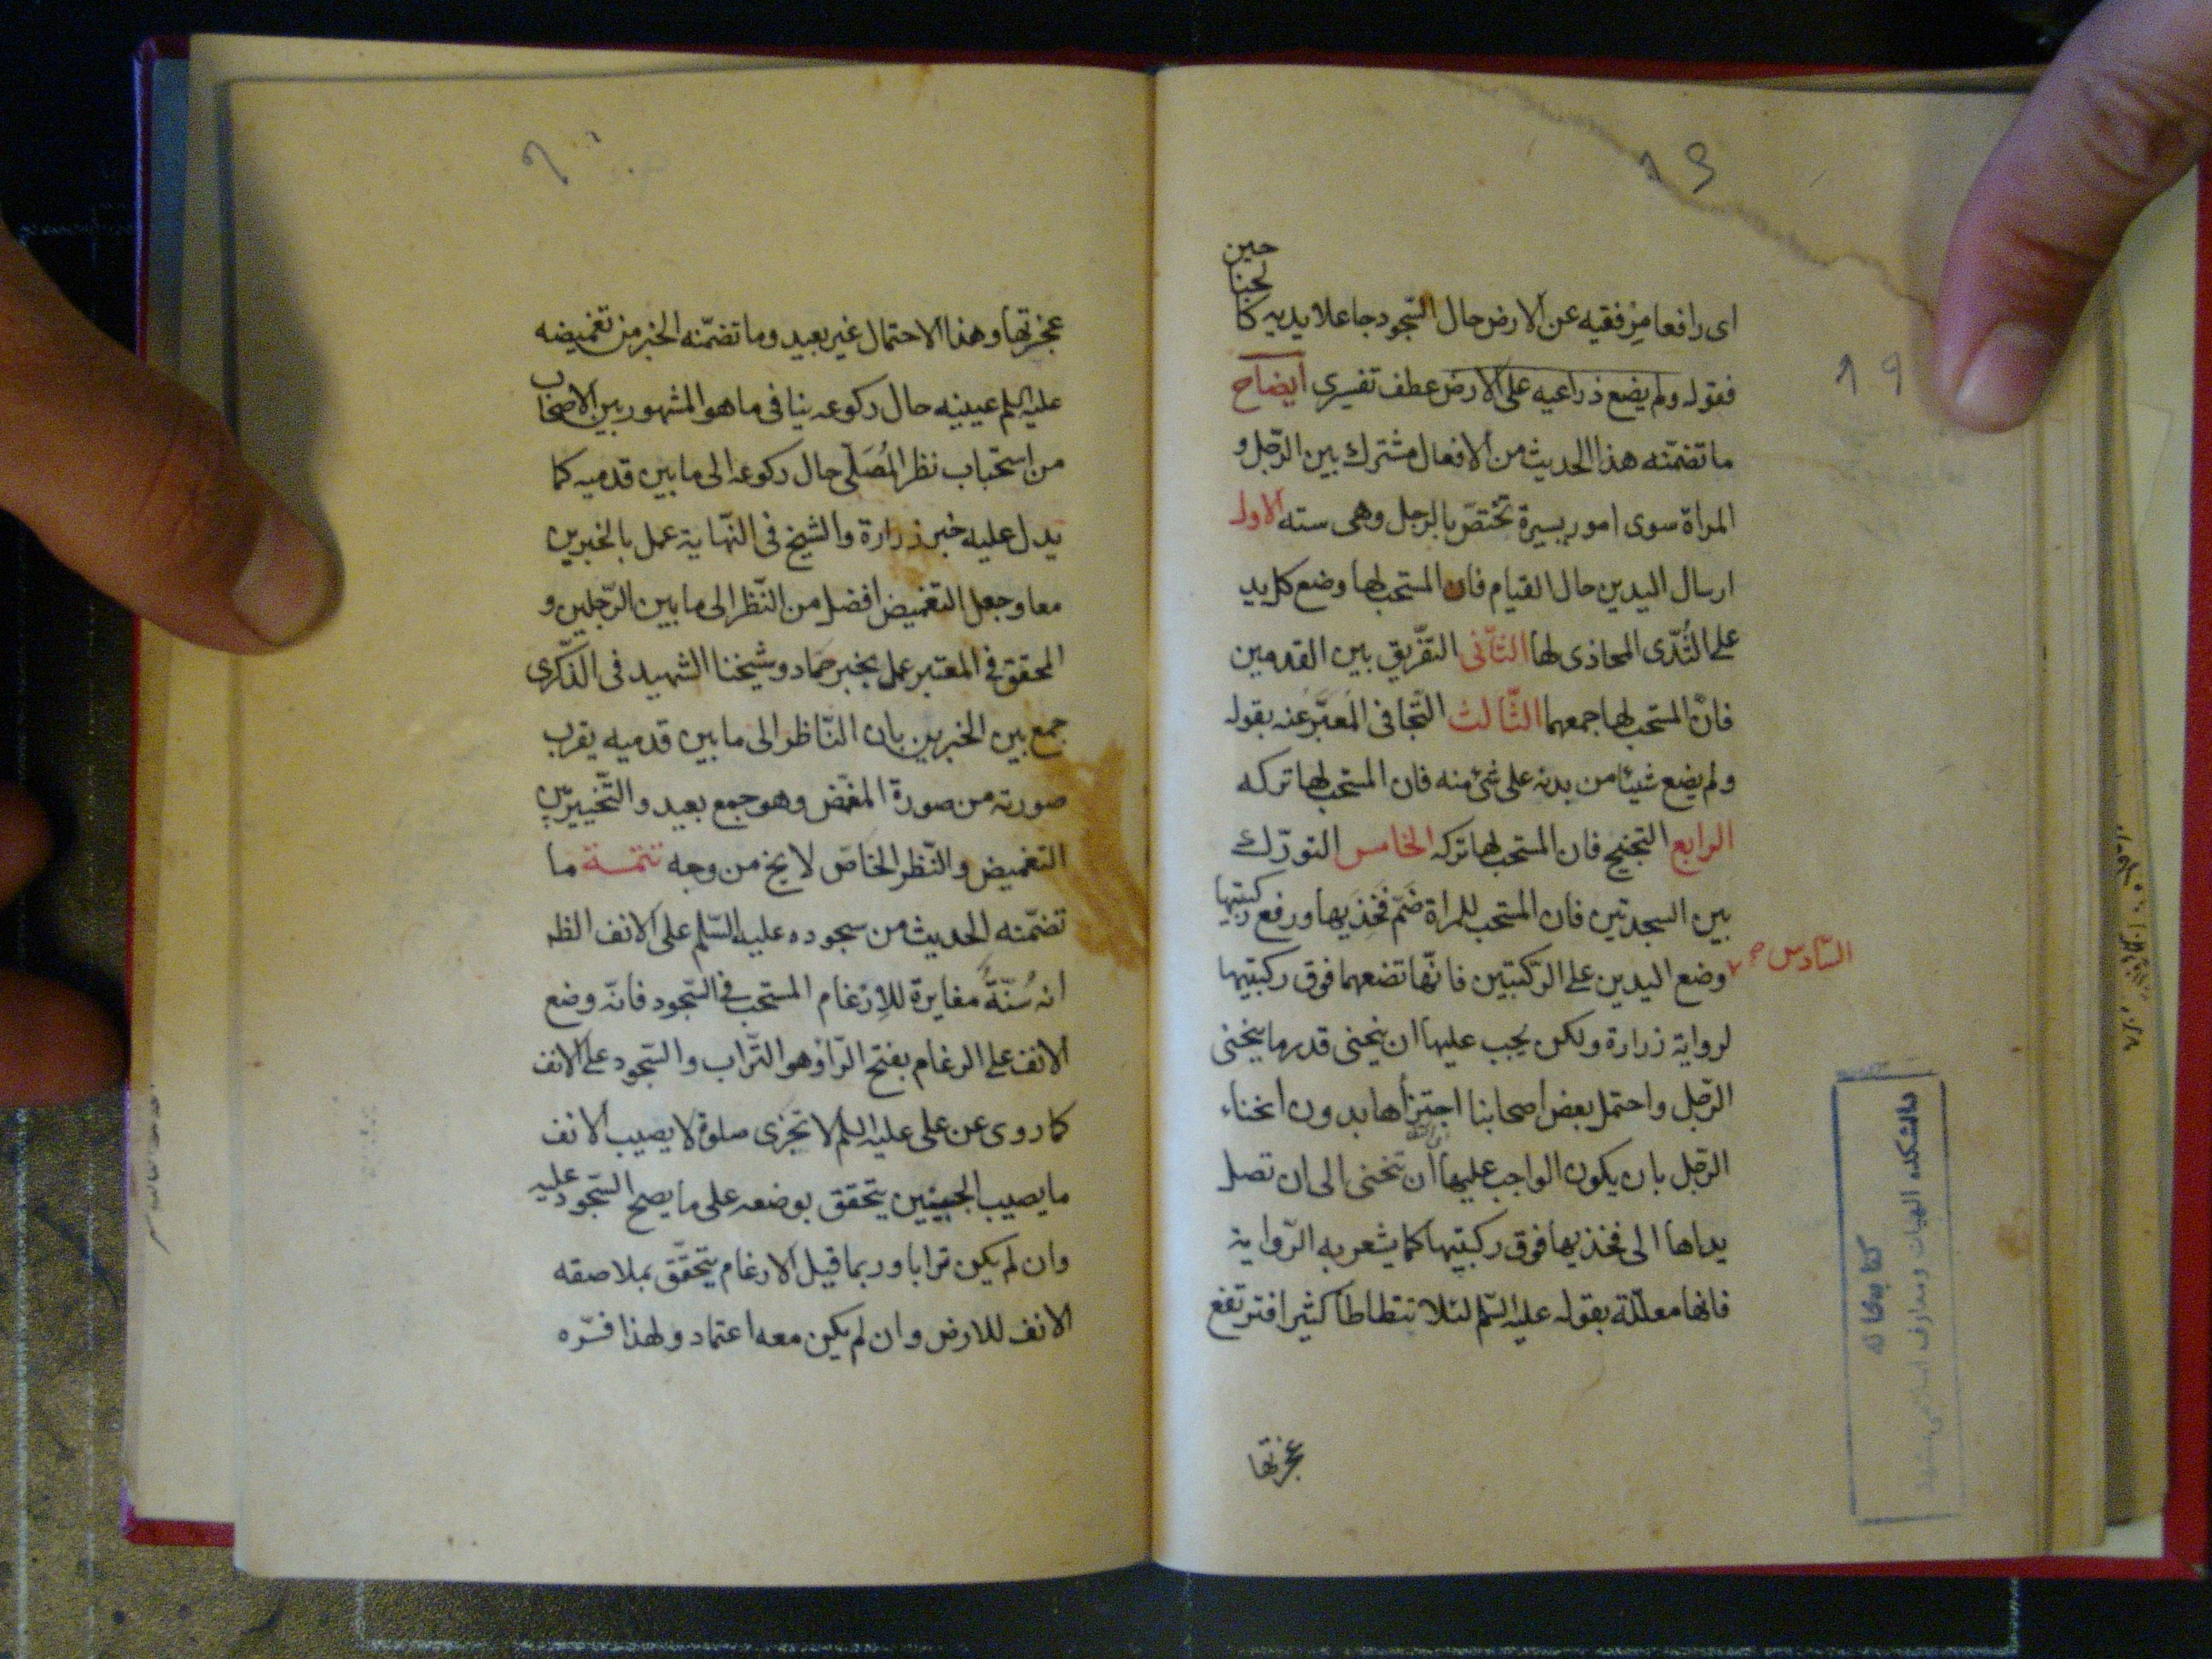 19
19
اى رافعا مِرْفقيه عن الارض حال السّجود جاعلا يديه كالجناحين
فقوله ولم يضع ذراعيه على الارض عطف تفسيرى ايضاح
ما تضمّنه هذا الحديث من الافعال مشترك بين الرّجل و
المراة سوى امور يسيرة تختصّ بالرجل وهى سته الاول
ارسال اليدين حال القيام فان المستحب لها وضع كل يد
على الثّدى المحاذى لها الثّانى التّفريق بين القدمين
فانّ المستحب لها جمعهما الثّالث التّجافى المُعبَّر عنه بقوله
ولم يضع شيئا من بدنه على شئ منه فان المستحب لها تركه
الرابع التجنيح فان المستحب لها تركه الخامس التورّك
بين السجدتين فان المستحب للمراة ضمّ فخذيها ورفع ركبتيها
السّادس صح
وضع اليدين على الرّكبتين فانّها تضعهما فوق ركبتيها
لرواية زرارة ولكن يجب عليها ان ينحنى قدر ما ينحنى
الرّجل واحتمل بعض اصحابنا اجتزأها بدون انحناء
الرّجل بان يكون الواجب عليها ان تنحنى الى ان تصل
يداها الى فخذيها فوق ركبتيها كما يشعر به الرّواية
فانها معلّلة بقوله عليه السّلم لئلا تتطاطا كثيرا فترتفع
عجزتها
دانشكده الهيات ومعارف اسلامى مشهد
كتابخانه
عجزتها وهذا الاحتمال غير بعيد وما تضمّنه الخبر من تغميضه
عليه السلم عينيه حال ركوعه ينافى ما هو المشهور بين الاصحاب
من استحباب نظر المُصَلّى حال ركوعه الى ما بين قدميه كما
يدل عليه خبر زرارة والشيخ فى النّهاية عمل بالخبرين
معا وجعل التغميض افضل من النّظر الى ما بين الرّجلين و
المحقق فى المعتبر عمل بخبر حماد وشيخنا الشهيد فى الذّكرى
جمع بين الخبرين بان النّاظر الى ما بين قدميه يقرب
صورته من صورة المغمّض وهو جمع بعيد والتّخيير بين
التغميض والنّظر الخاصّ لا يخ من وجه تتمّة ما
تضمّنه الحديث من سجوده عليه السّلم على الانف الظ
انه سُنّةٌ مغايرة للاِرْغام المستحب فى السّجود فانّه وضع
الانف على الرغام بفتح الرّا وهو التّراب والسّجود على الانف
كما روى عن على عليه السلم لا تجزى صلوة لا يصيب الانف
ما يصيب الجبينين يتحقق بوضعه على ما يصح السّجود عليه
وان لم يكن ترابا وربما قيل الارغام يتحقّق بملاصقه
الانف للارض وان لم يكن معه اعتماد ولهذا فسّره